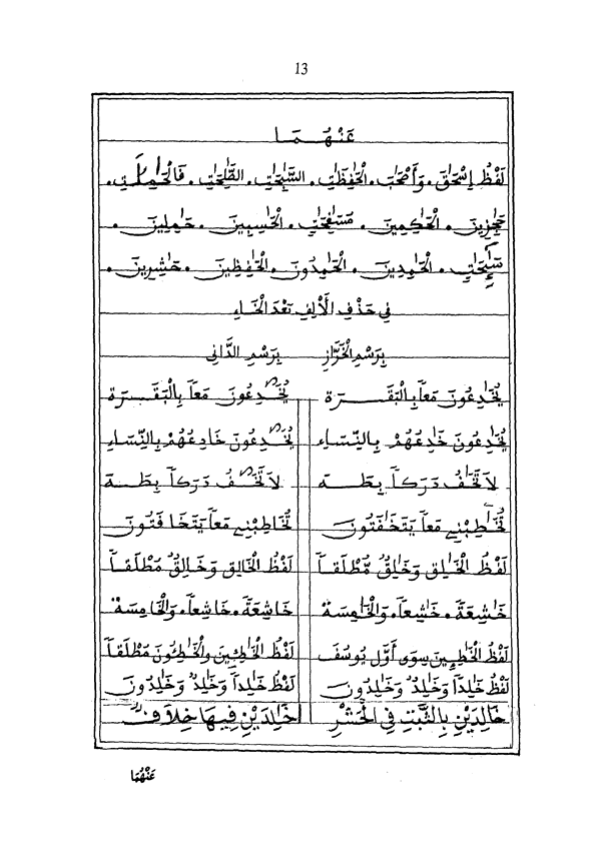 13
عَنْهُمَا
لَفْظُ إِسْحَٰقَ . وَأَصْحَٰبَ . الْحَٰفِظَٰتِ . السَّٰبِحَٰتِ . الصَّٰلِحَٰتِ . فَالْحَٰمِلَٰتِ .
حَٰجِزِينَ . الْحَٰكِمِينَ . مُسَٰفِحَٰتٍ . الْحَٰسِبِينَ . حَٰمِلِينَ .
سَٰٓئِحَٰتٍ . الْحَٰمِدِينَ . الْحَٰمِدُونَ . الْحَٰفِظِينَ . حَٰشِرِينَ .
فِي حَذْفِ الْأَلِفِ بَعْدَ الْخَاءِ
بِرَسْمِ الْخَرَّازِ بِرَسْمِ الدَّانِي
يُخَٰدِعُونَ مَعاً بِالْبَقَرَة يُخَٰدِعُونَ مَعاً بِالْبَقَرَة
يُخَٰدِعُونَ خَٰدِعُهُمْ بِالنِّسَاءِ يُخَٰدِعُونَ خَادِعُهُمْ بِالنِّسَاءِ
لَا تَخَٰفُ دَرَكاً بِطَهَ لَا تَخَٰفُ دَرَكاً بِطَهَ
تُخَٰطِبْنِي مَعاً يَتَخَٰفَتُونَ تُخَاطِبْنِي مَعاً يَتَخَافَتُونَ
لَفْظُ الْخَٰلِقِ وَخَٰلِقُ مُطْلَقاً لَفْظُ الْخَالِقِ وَخَالِقُ مُطْلَقاً
خَٰشِعَةً . خَٰشِعاً . وَالْخَٰمِسَةُ خَاشِعَةً . خَاشِعاً . وَالْخَامِسَةُ
لَفْظُ الْخَٰطِـِٕينَ سِوَى أَوَّلِ يُوسُفَ لَفْظُ الْخَٰطِـِٕينَ وَالْخَٰطِـُٔونَ مُطْلَقاً
لَفْظُ خَٰلِداً وَخَٰلِدٌ وَخَٰلِدُونَ لَفْظُ خَٰلِداً وَخَٰلِدٌ وَخَٰلِدُونَ
خَالِدَيْنِ بِالثَّبْتِ فِي الْحَشْرِ خَٰلِدَيْنِ فِيهَا خِلَافٌ
عَنْهُمَا